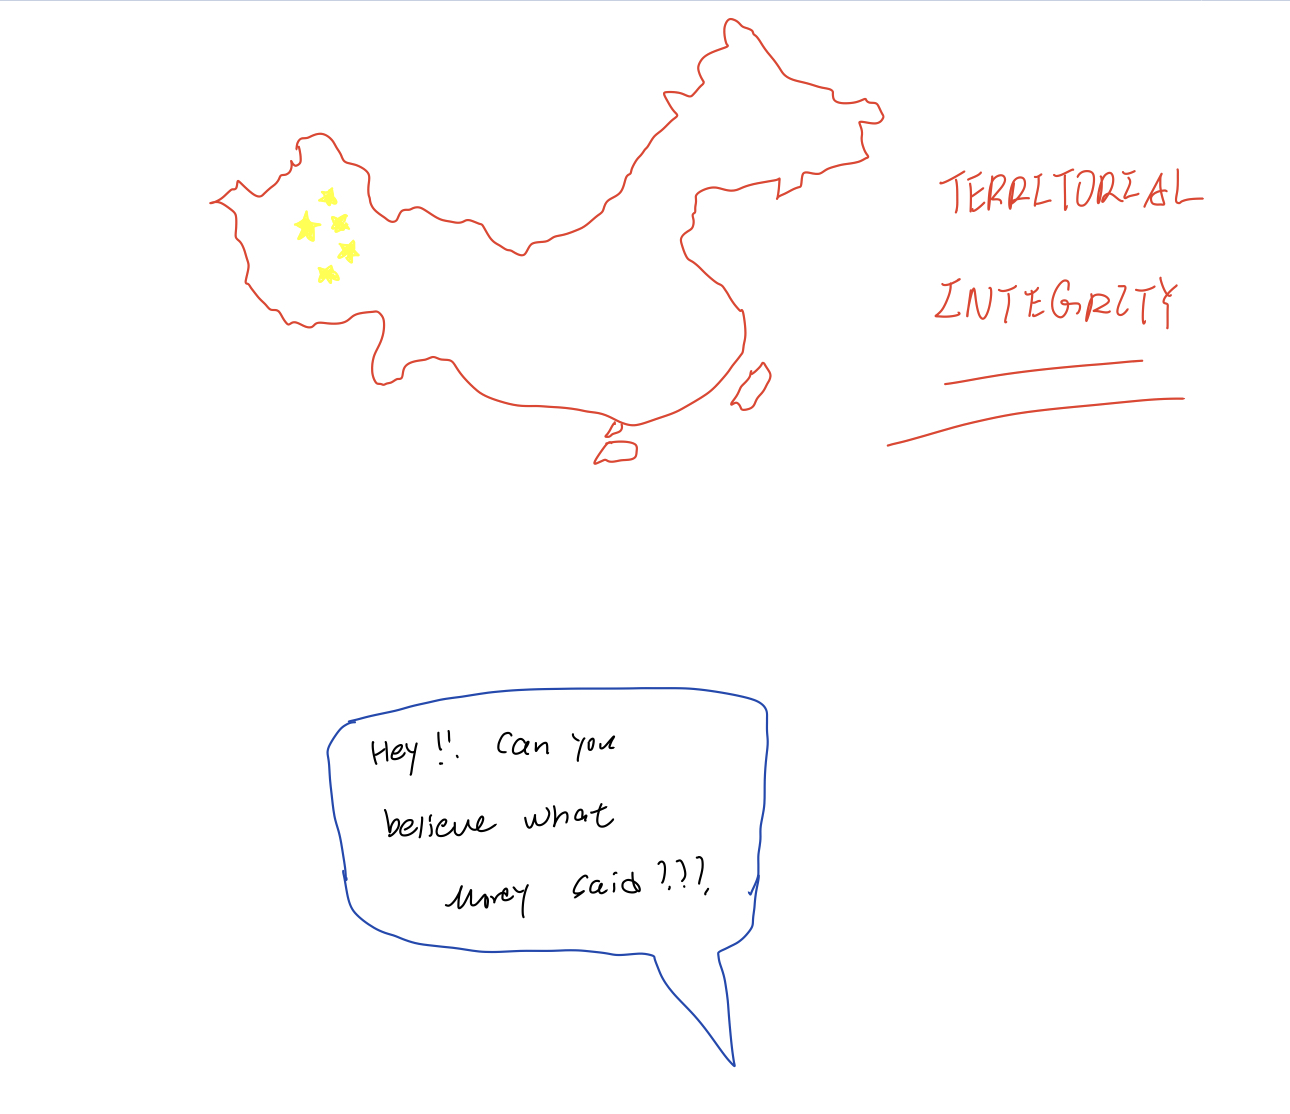 TERRITORIAL
INTEGRITY
Hey!!. Can you
believe what
Morey said???